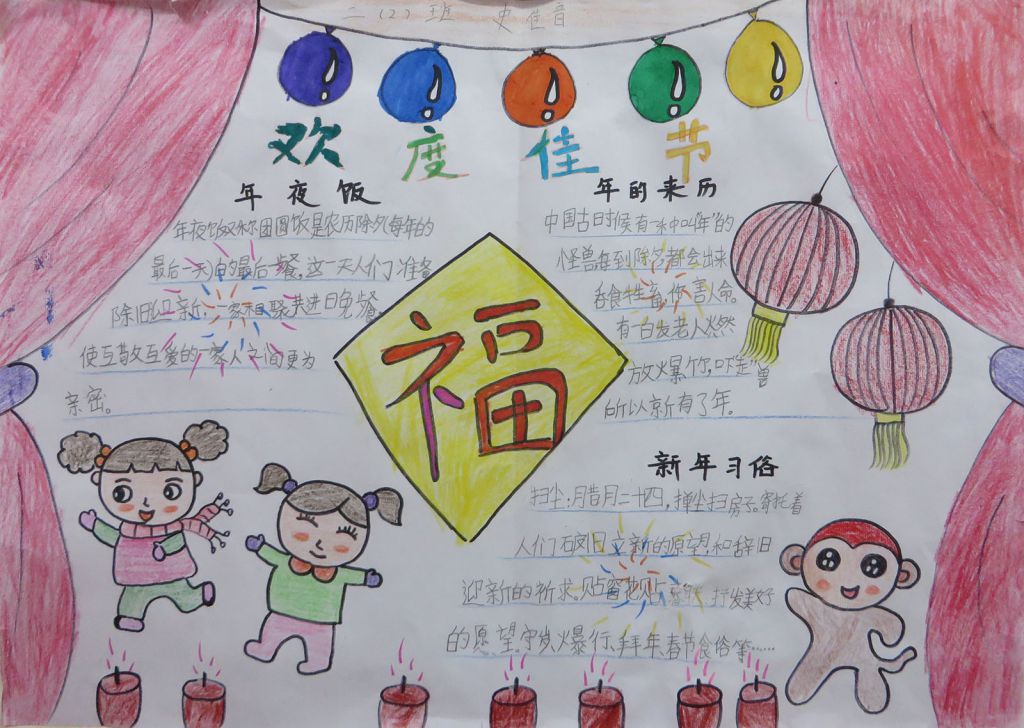 二（2）班 史佳音
欢度佳节
年夜饭
年夜饭又称团圆饭是农历除夕(每年的
最后一天)的最后一餐,这一天人们准备
除旧迎新,一家相聚,共进晚餐。
使互敬互爱的一家人之间更为
亲密。
福
年的来历
中国古时候有一种叫"年"的
怪兽每到除夕都会出来
吞食牲畜,伤害人命。
有一白发老人
放爆竹,吓走"兽
所以就有了年。
新年习俗
扫尘:腊月二十四,掸尘扫房子。寄托着
人们破旧立新的原望,和辞旧
迎新的祈求。贴窗花贴 抒发美好
的愿望.守岁、爆行、拜年、春节食俗等……